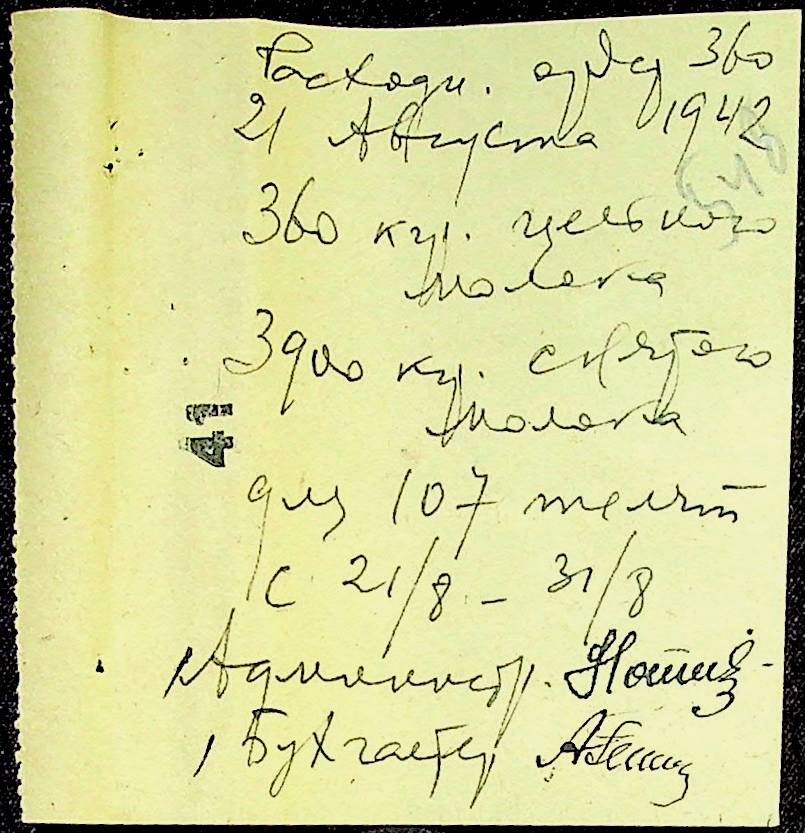 Расходн. ордер 360
21 Августа 1942
548
360 кгр. цельного
молока
3900 кгр. снятого
молока
41
для 107 телят
с 21/8 - 31/8
Администр.
Бухгалтер